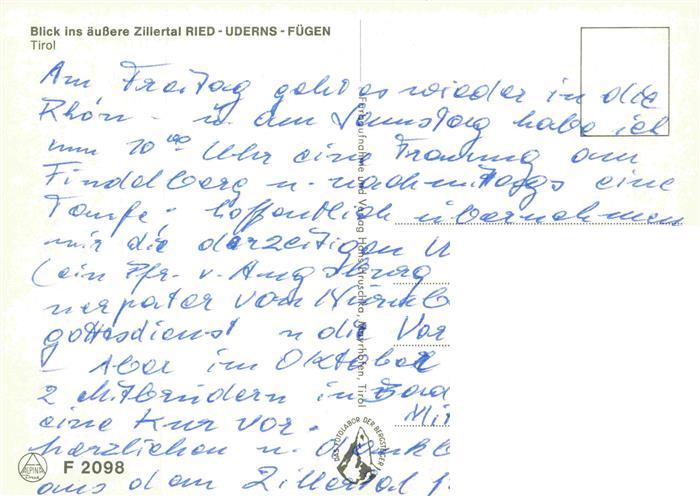 Blick ins äußere Zillertal RIED - UDERNS - FÜGEN
Tirol
Am Freitag geht es wieder in die
Rhön - u. am Samstag habe ich
um 10 00 Uhr eine Trauung am
Findelberg u. nachmittags eine
Taufe - hoffentlich übernehmen
mir die derzeitigen U
(ein Pfr. v. Augsburg
nerpater vom Nürnb
gottesdienst u die Vor
- Aber im Oktober
2 Mitbrüdern in Bad
eine Kur vor. Mit
herzlichen u.
aus dem Zillertal
Farbaufnahme und Verlag Hans Hruschka, Mayrhofen, Tirol
DAS FOTOLABOR DER BERGSTEIGER
ALPINA
Druck
F 2098